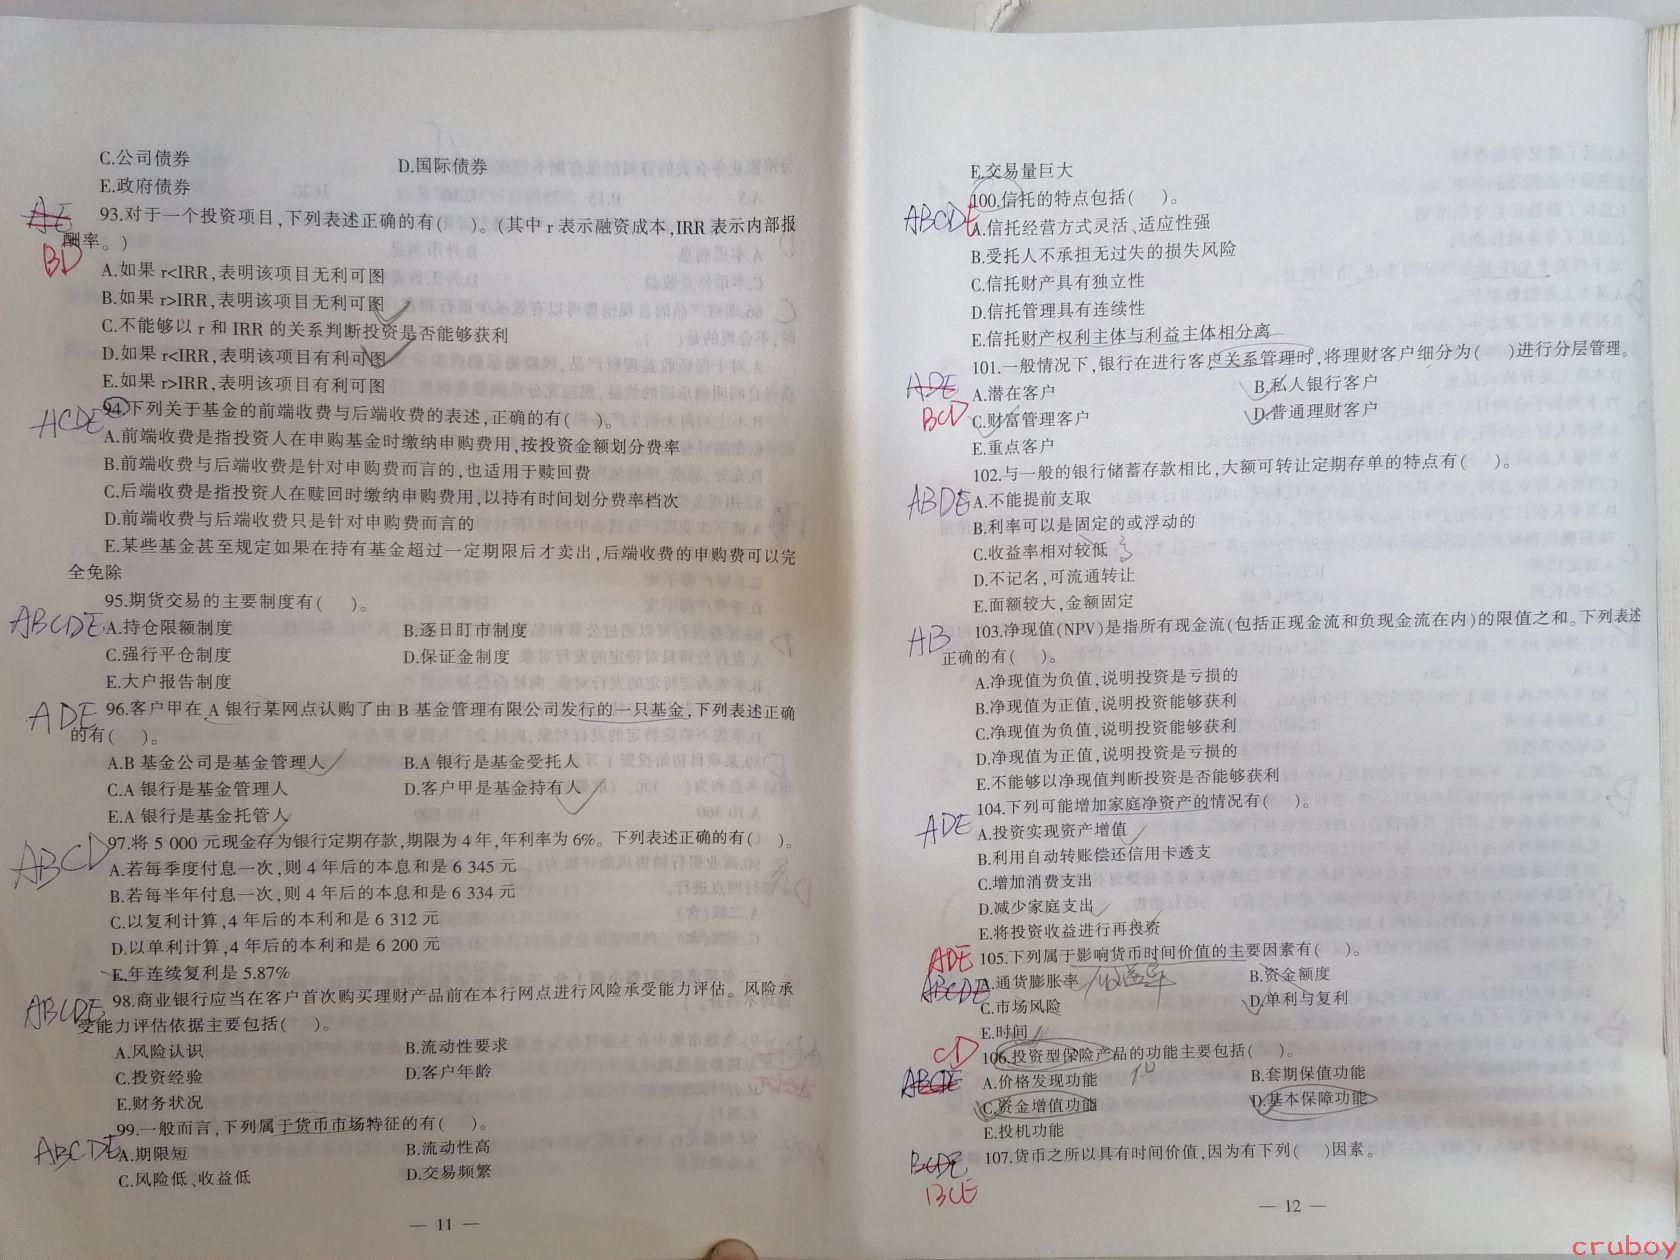 C.公司债券 D.国际债券
E.政府债券
AE
BD
93.对于一个投资项目,下列表述正确的有( )。(其中 r 表示融资成本,IRR 表示内部报
酬率。)
A.如果 r<IRR,表明该项目无利可图
B.如果 r>IRR,表明该项目无利可图
C.不能够以 r 和 IRR 的关系判断投资是否能够获利
D.如果 r<IRR,表明该项目有利可图
E.如果 r>IRR,表明该项目有利可图
ACDE
94.下列关于基金的前端收费与后端收费的表述,正确的有( )。
A.前端收费是指投资人在申购基金时缴纳申购费用,按投资金额划分费率
B.前端收费与后端收费是针对申购费而言的,也适用于赎回费
C.后端收费是指投资人在赎回时缴纳申购费用,以持有时间划分费率档次
D.前端收费与后端收费只是针对申购费而言的
E.某些基金甚至规定如果在持有基金超过一定期限后才卖出,后端收费的申购费可以完
全免除
95.期货交易的主要制度有( )。
ABCDE
A.持仓限额制度 B.逐日盯市制度
C.强行平仓制度 D.保证金制度
E.大户报告制度
ADE
96.客户甲在 A 银行某网点认购了由 B 基金管理有限公司发行的一只基金,下列表述正确
的有( )。
A.B 基金公司是基金管理人 B.A 银行是基金受托人
C.A 银行是基金管理人 D.客户甲是基金持有人
E.A 银行是基金托管人
ABCD
97.将 5 000 元现金存为银行定期存款,期限为 4 年,年利率为 6%。下列表述正确的有( )。
A.若每季度付息一次,则 4 年后的本息和是 6 345 元
B.若每半年付息一次,则 4 年后的本息和是 6 334 元
C.以复利计算,4 年后的本利和是 6 312 元
D.以单利计算,4 年后的本利和是 6 200 元
E.年连续复利是 5.87%
ABCDE
98.商业银行应当在客户首次购买理财产品前在本行网点进行风险承受能力评估。风险承
受能力评估依据主要包括( )。
A.风险认识 B.流动性要求
C.投资经验 D.客户年龄
E.财务状况
99.一般而言,下列属于货币市场特征的有( )。
ABCDE
A.期限短 B.流动性高
C.风险低、收益低 D.交易频繁
— 11 —
E.交易量巨大
100.信托的特点包括( )。
ABCDE
A.信托经营方式灵活、适应性强
B.受托人不承担无过失的损失风险
C.信托财产具有独立性
D.信托管理具有连续性
E.信托财产权利主体与利益主体相分离
101.一般情况下,银行在进行客户关系管理时,将理财客户细分为( )进行分层管理。
ADE
BCD
A.潜在客户 B.私人银行客户
C.财富管理客户 D.普通理财客户
E.重点客户
102.与一般的银行储蓄存款相比,大额可转让定期存单的特点有( )。
ABDE
A.不能提前支取
B.利率可以是固定的或浮动的
C.收益率相对较低 高
D.不记名,可流通转让
E.面额较大,金额固定
AB
103.净现值(NPV)是指所有现金流(包括正现金流和负现金流在内)的限值之和。下列表述
正确的有( )。
A.净现值为负值,说明投资是亏损的
B.净现值为正值,说明投资能够获利
C.净现值为负值,说明投资能够获利
D.净现值为正值,说明投资是亏损的
E.不能够以净现值判断投资是否能够获利
104.下列可能增加家庭净资产的情况有( )。
ADE
A.投资实现资产增值
B.利用自动转账偿还信用卡透支
C.增加消费支出
D.减少家庭支出
E.将投资收益进行再投资
ADE
105.下列属于影响货币时间价值的主要因素有( )。
ABCDE
A.通货膨胀率 收益率 B.资金额度
C.市场风险 D.单利与复利
E.时间
CD
106.投资型保险产品的功能主要包括( )。
ABCDE
A.价格发现功能 B.套期保值功能
C.资金增值功能 D.基本保障功能
E.投机功能
BCDE
BCE
107.货币之所以具有时间价值,因为有下列( )因素。
— 12 —
cruboy